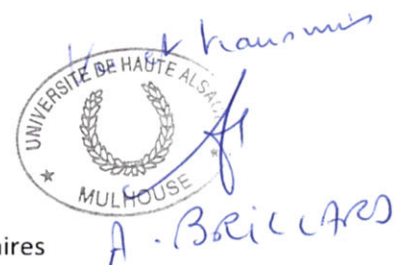 Vu et transmis
UNIVERSITÉ DE HAUTE ALSACE
MULHOUSE
A. BRILLARD
aires